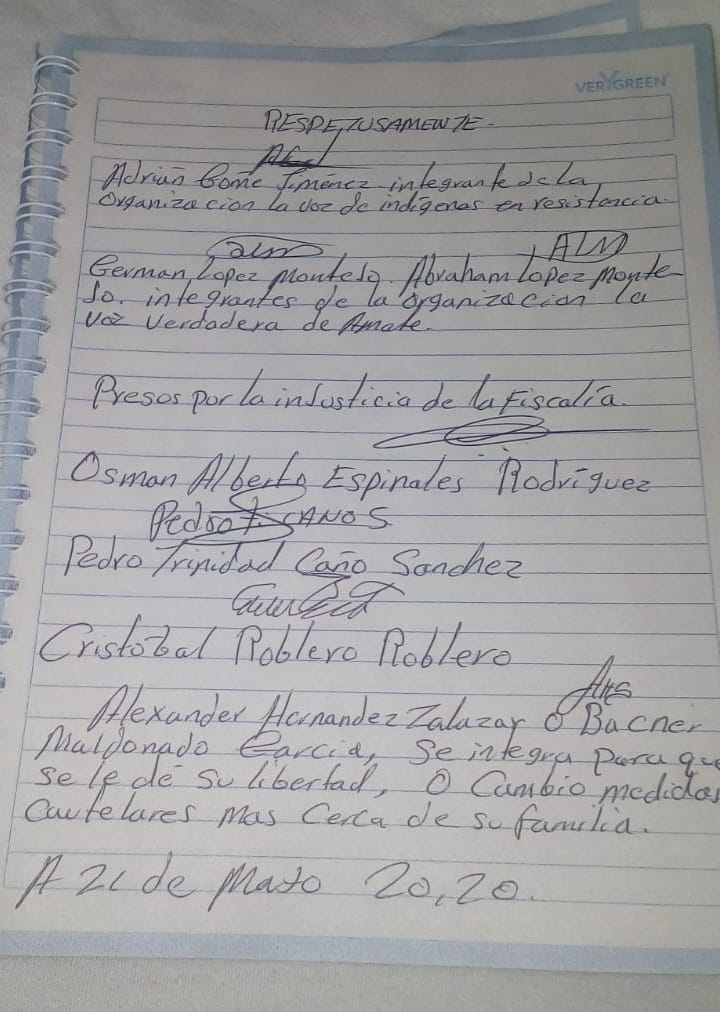 VERYGREEN
RESPETUSAMENTE.
Adrián Gome Jiménez. integrante de la
Organizacion la voz de indígenas en resistencia.
alm ALM
German Lopez Monteso. Abraham Lopez Monte
so. integrantes de la organizacion la
voz verdadera de Amate.
Presos por la injusticia de la Fiscalía.
Osman Alberto Espinales Rodríguez
Pedro T. CANO S
Pedro Trinidad Caño Sanchez
Cristobal Roblero Roblero
AHS
Alexander Hernandez Zalazar O Bacner
Maldonado Garcia, Se integra para que
se le dé su libertad, O Cambio medidas
Cautelares mas Cerca de su familia.
A 21 de Mayo 20,20.